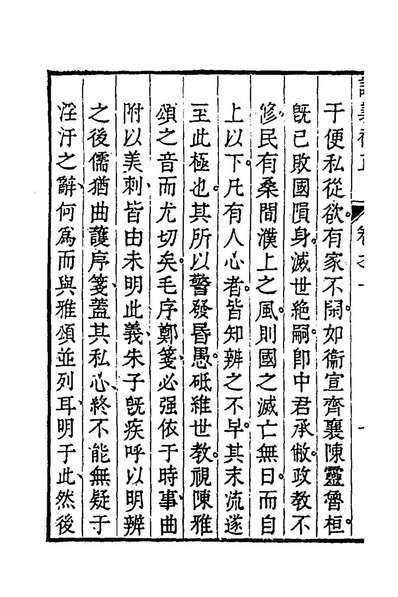 于便私從欲有家不閑如衞宣齊襄陳靈魯桓
旣已敗國隕身滅世絕嗣卽中君承敝政教不
修民有桑間濮上之風則國之滅亡無日而自
上以下凡有人心者皆知辨之不早其末流遂
至此極也其所以警發昏愚砥維世教視陳雅
頌之音而尤切矣毛序鄭箋必强依于時事曲
附以美刺皆由未明此義朱子旣疾呼以明辨
之後儒猶曲護序箋蓋其私心終不能無疑于
淫汙之辭何爲而與雅頌並列耳明于此然後